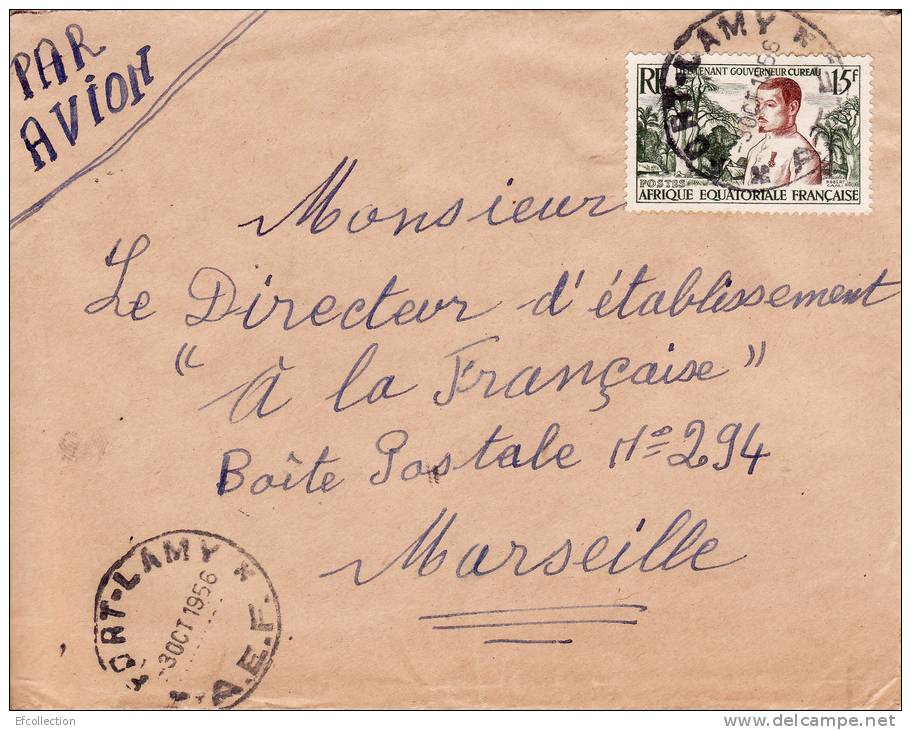 PAR
AVION
FORT-LAMY *
-3 OCT 1956
A.E.F.
RF LIEUTENANT GOUVERNEUR CUREAU 15F
POSTES
AFRIQUE EQUATORIALE FRANÇAISE
Monsieur
Le Directeur d'établissement
"à la Française"
Boîte Postale No 294
Marseille
FORT-LAMY *
-3 OCT 1956
A.E.F.
Efcollection
delcampe.net